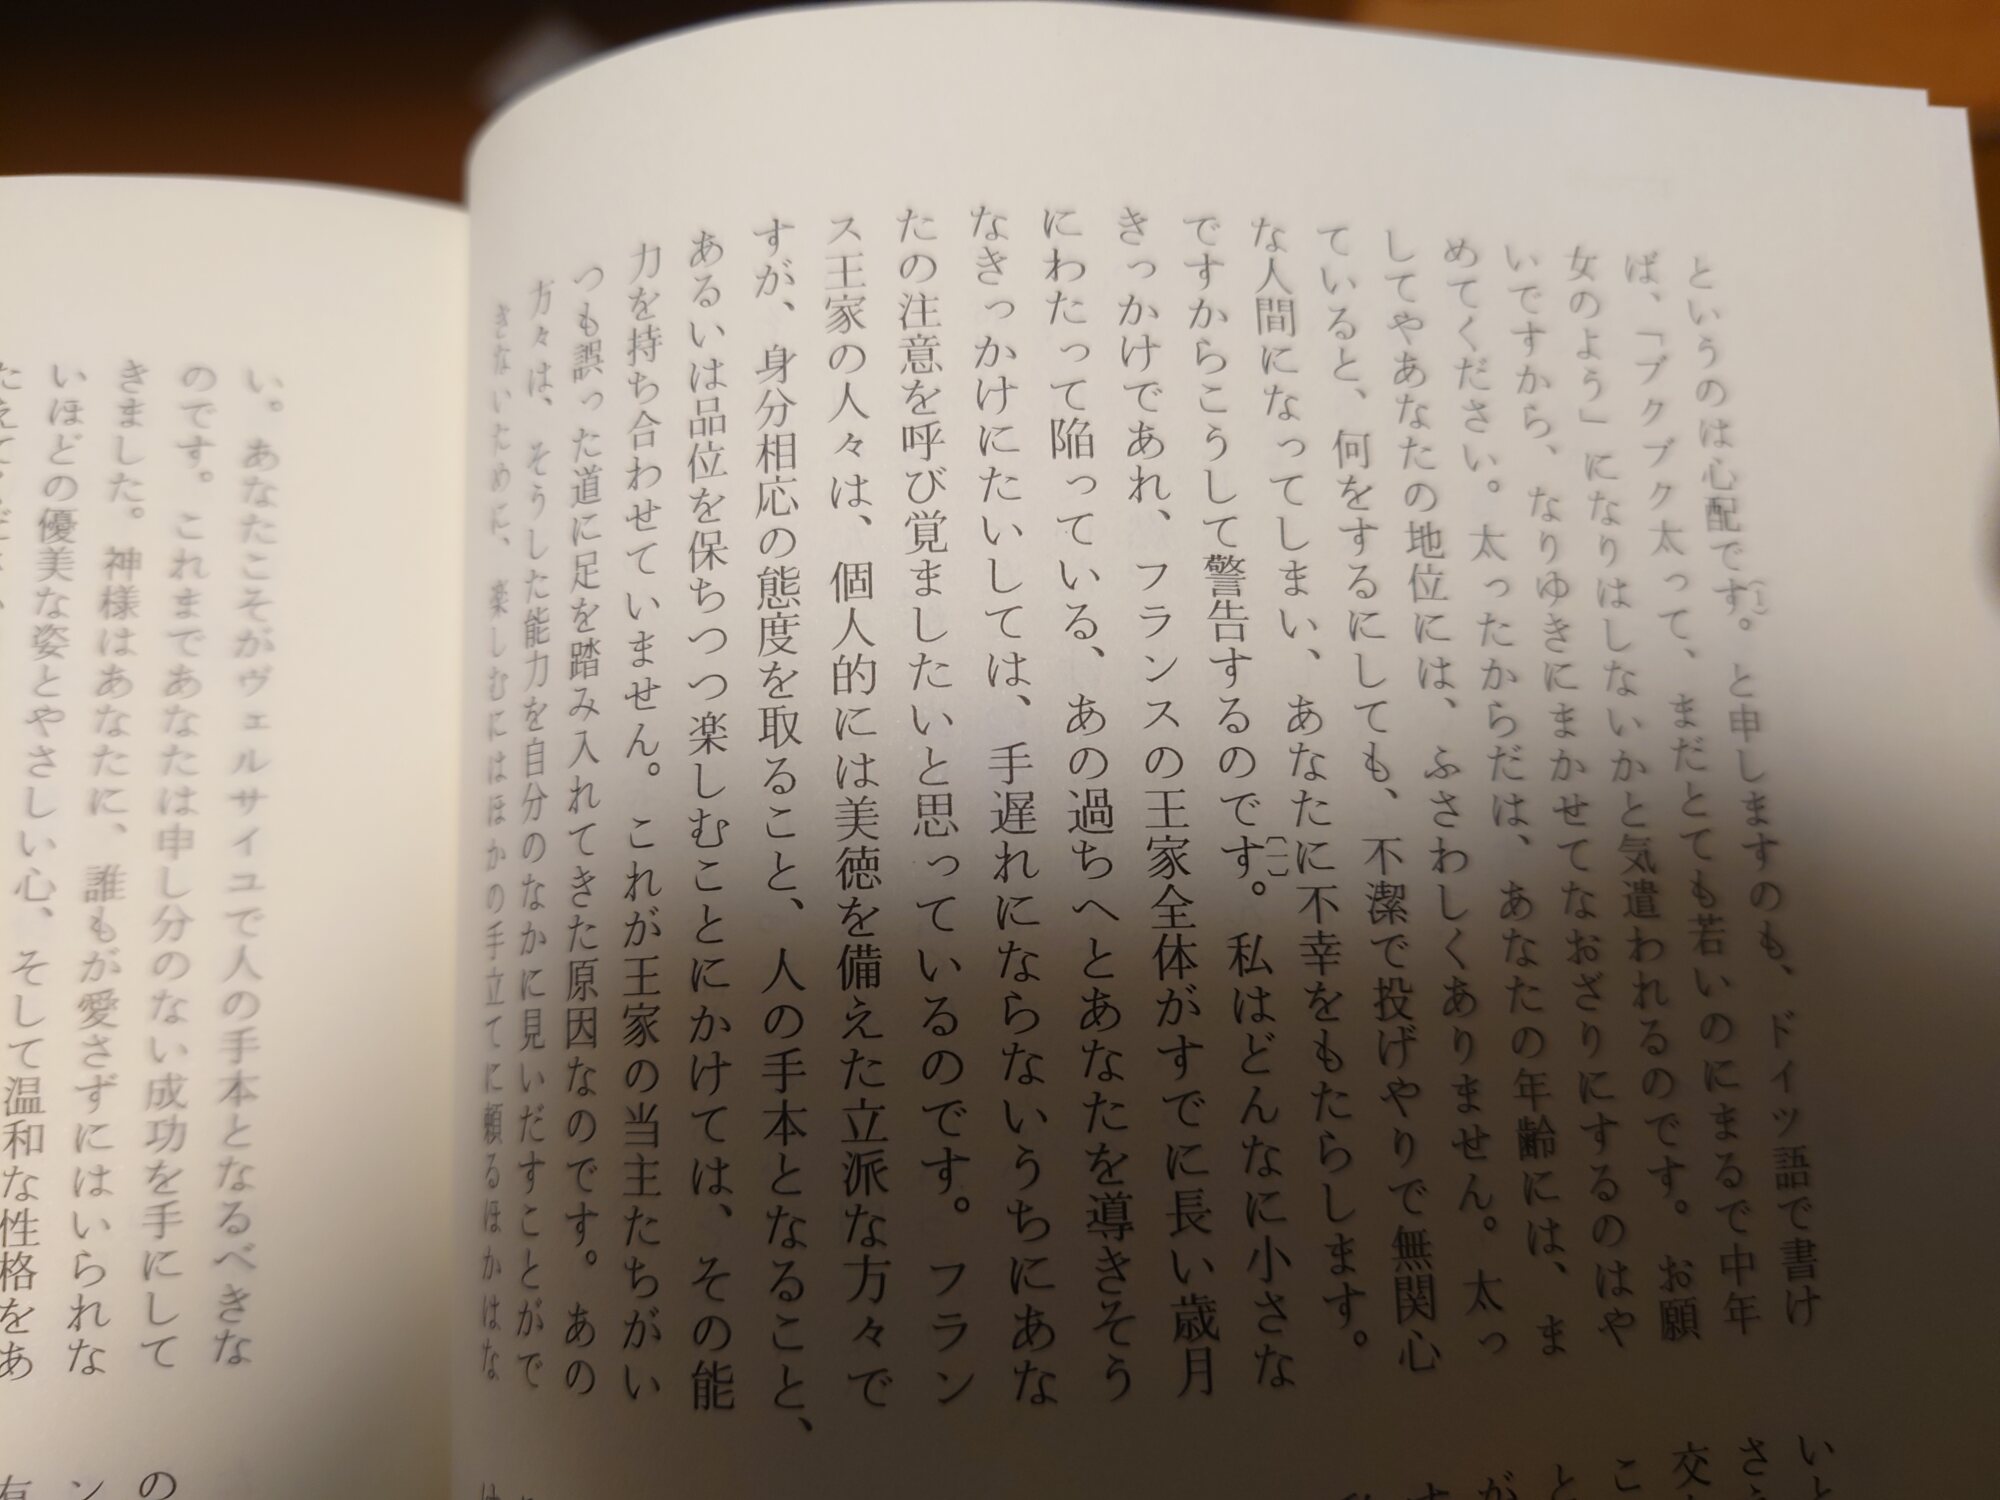 というのは心配です。と申しますのも、ドイツ語で書け
(一)
ば、「ブクブク太って、まだとても若いのにまるで中年
女のよう」になりはしないかと気遣われるのです。お願
いですから、なりゆきにまかせてなおざりにするのはや
めてください。太ったからだは、あなたの年齢には、ま
してやあなたの地位には、ふさわしくありません。太っ
ていると、何をするにしても、不潔で投げやりで無関心
な人間になってしまい、あなたに不幸をもたらします。
ですからこうして警告するのです。私はどんなに小さな
(二)
きっかけであれ、フランスの王家全体がすでに長い歳月
にわたって陥っている、あの過ちへとあなたを導きそう
なきっかけにたいしては、手遅れにならないうちにあな
たの注意を呼び覚ましたいと思っているのです。フラン
ス王家の人々は、個人的には美徳を備えた立派な方々で
すが、身分相応の態度を取ること、人の手本となること、
あるいは品位を保ちつつ楽しむことにかけては、その能
力を持ち合わせていません。これが王家の当主たちがい
つも誤った道に足を踏み入れてきた原因なのです。あの
方々は、そうした能力を自分のなかに見いだすことがで
きないために、楽しむにはほかの手立てに頼るほかはな
い。あなたこそがヴェルサイユで人の手本となるべきな
のです。これまであなたは申し分のない成功を手にして
きました。神様はあなたに、誰もが愛さずにはいられな
いほどの優美な姿とやさしい心、そして温和な性格をあ
いと
さ
交
こ
と
が
の
ン